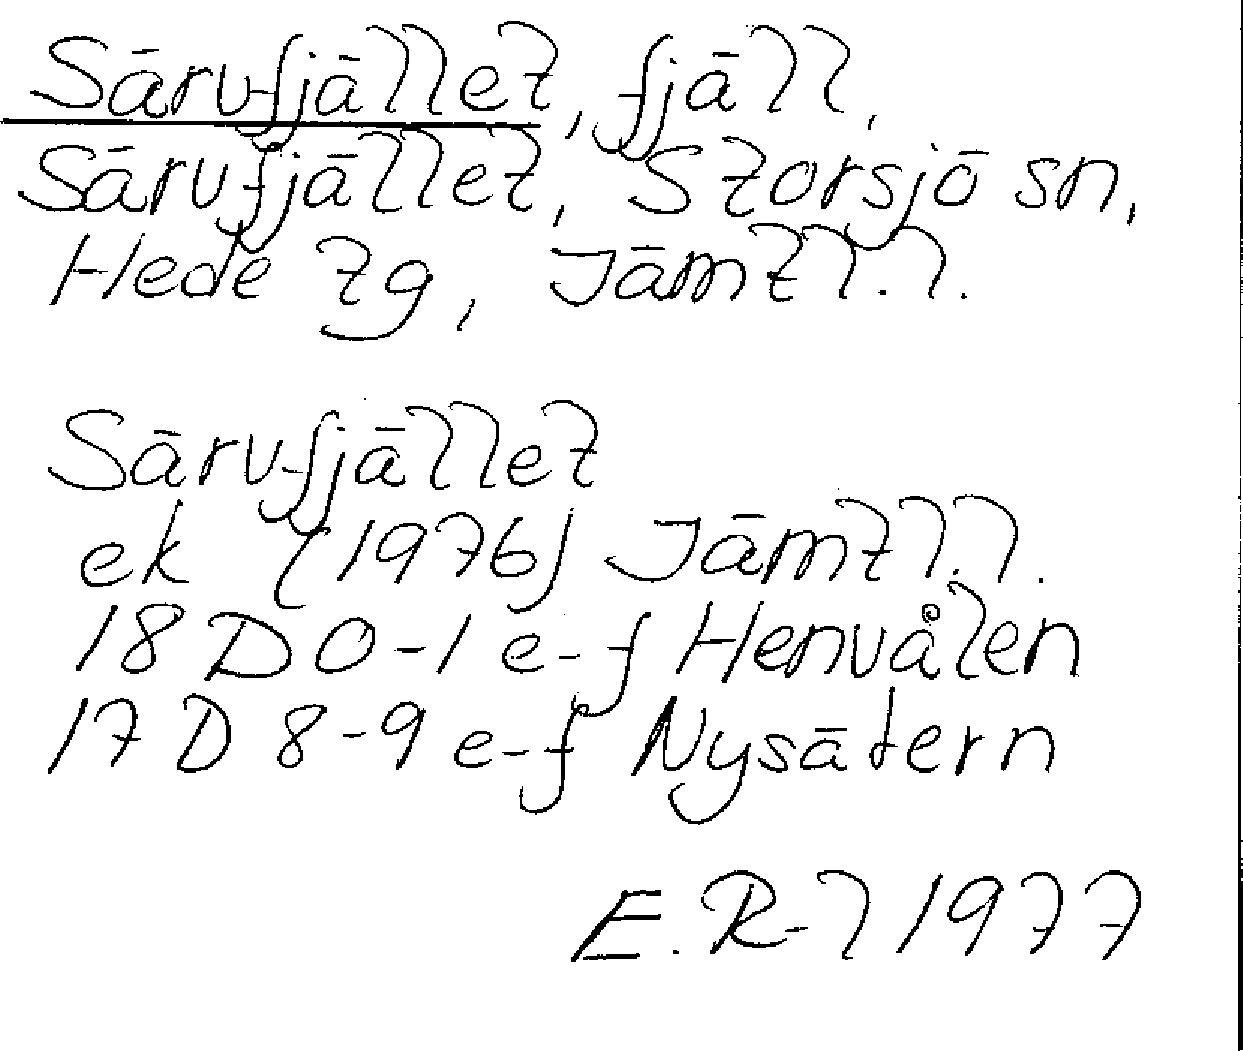 Särvfjället, fjäll,
Särvfjället, Storsjö sn,
Hede tg, Jämtl.l.
Särvfjället
ek (1976) Jämtl.l.
18 D 0-1 e-f Henvålen
17 D 8-9 e-f Nysätern
E. R-l 1977